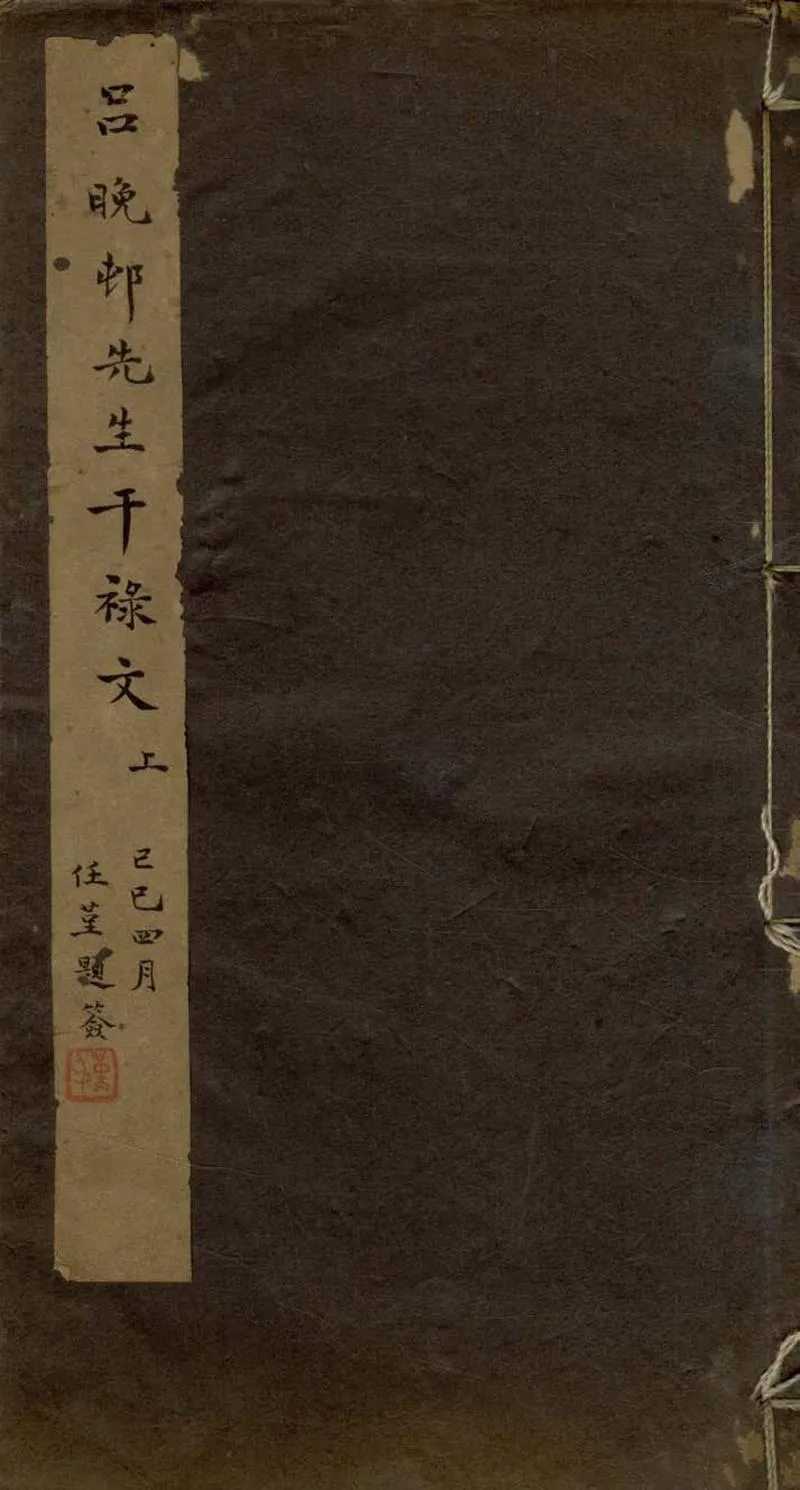 呂晚邨先生干祿文 上
己巳四月
任堇題簽